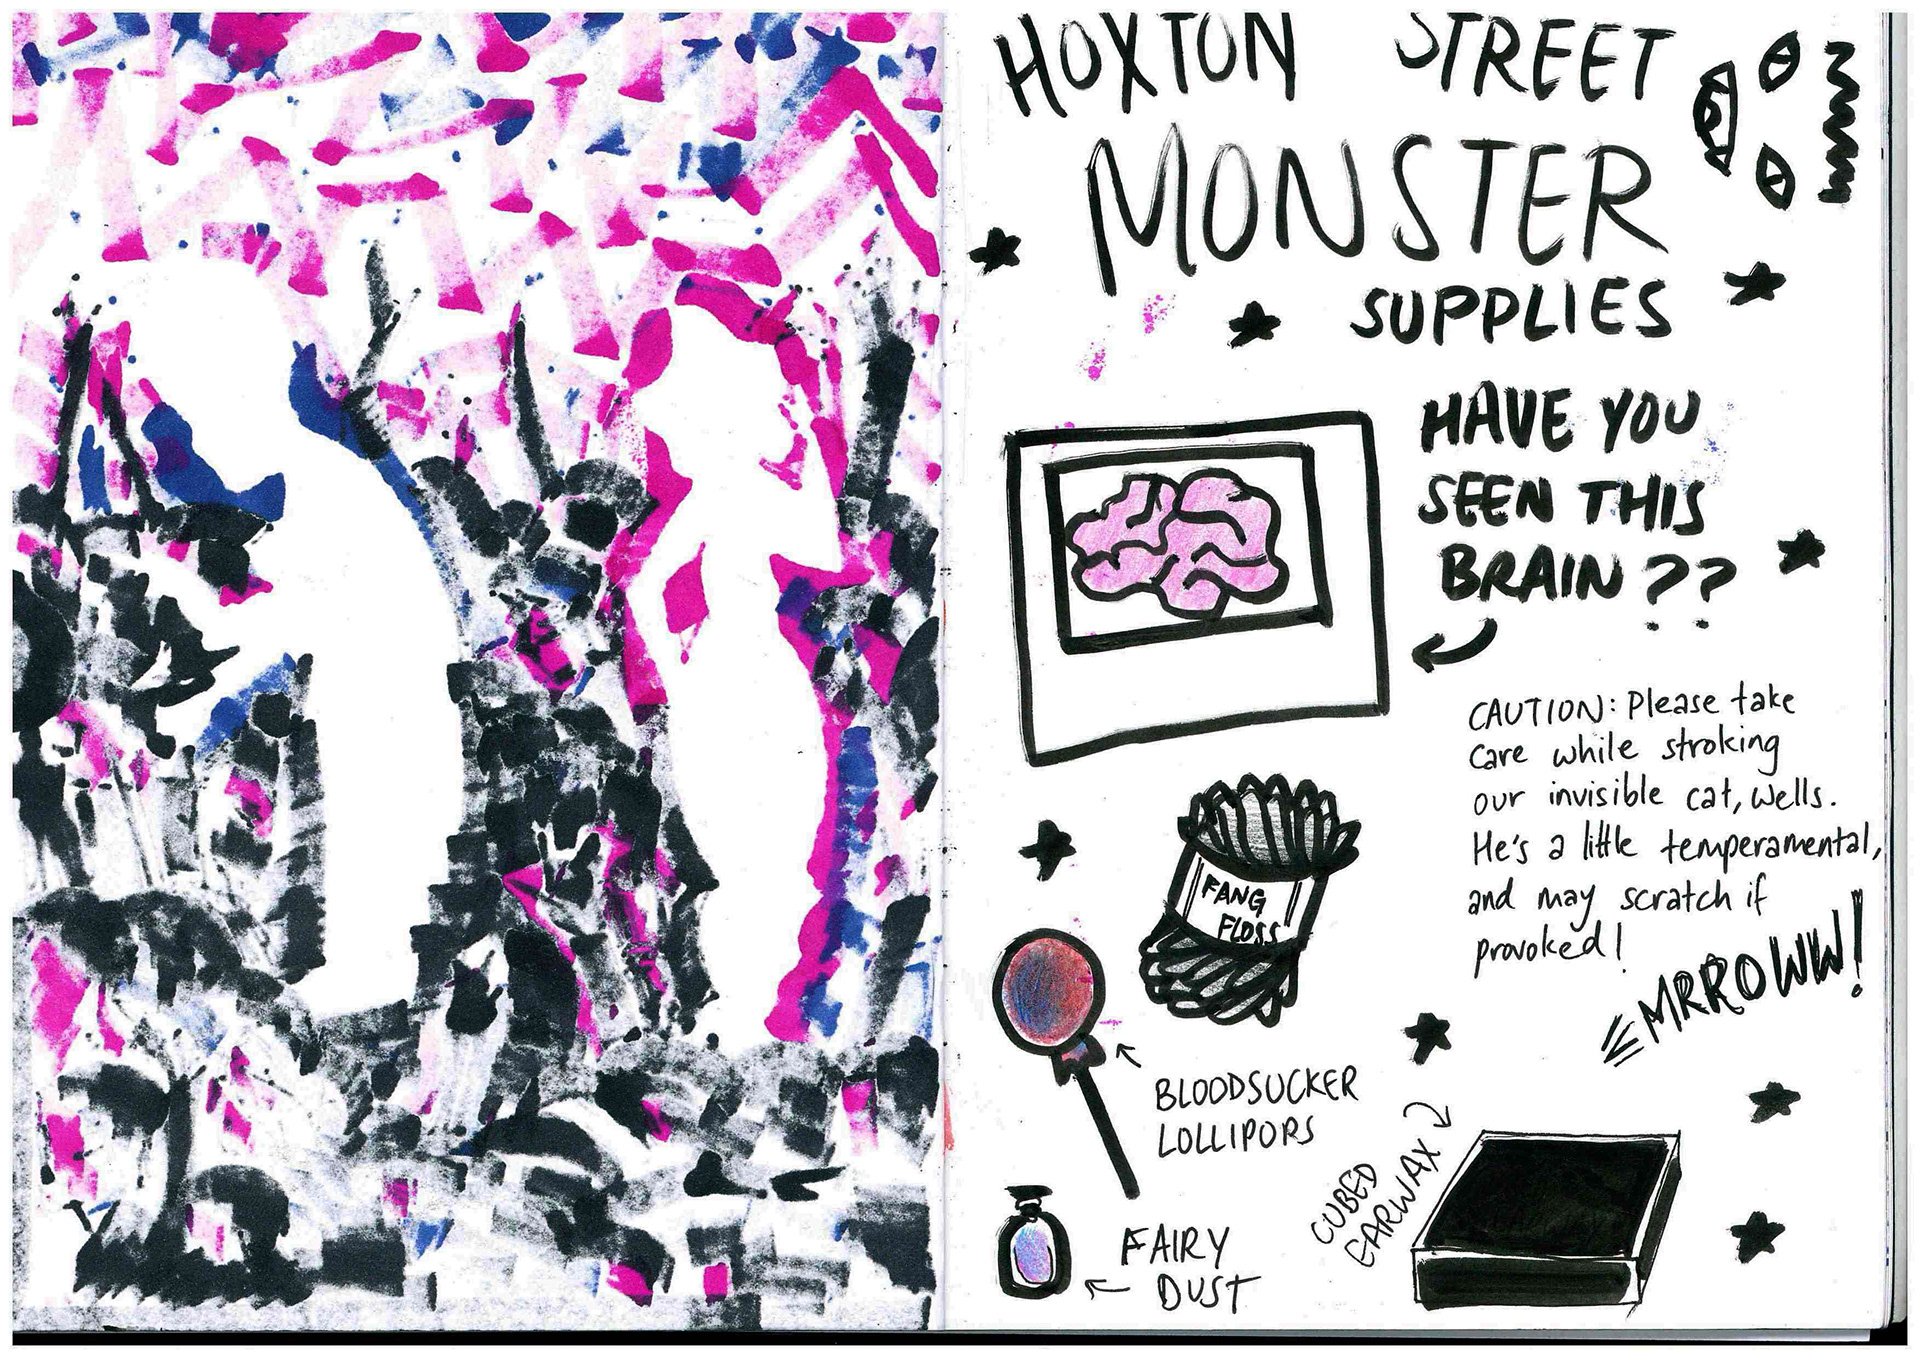 HOXTON STREET
MONSTER
SUPPLIES
HAVE YOU
SEEN THIS
BRAIN??
CAUTION: Please take
care while stroking
our invisible cat, Wells.
He's a little temperamental,
and may scratch if
provoked!
MRROWW!
FANG
FLOSS
BLOODSUCKER
LOLLIPOPS
CUBED
EARWAX
FAIRY
DUST